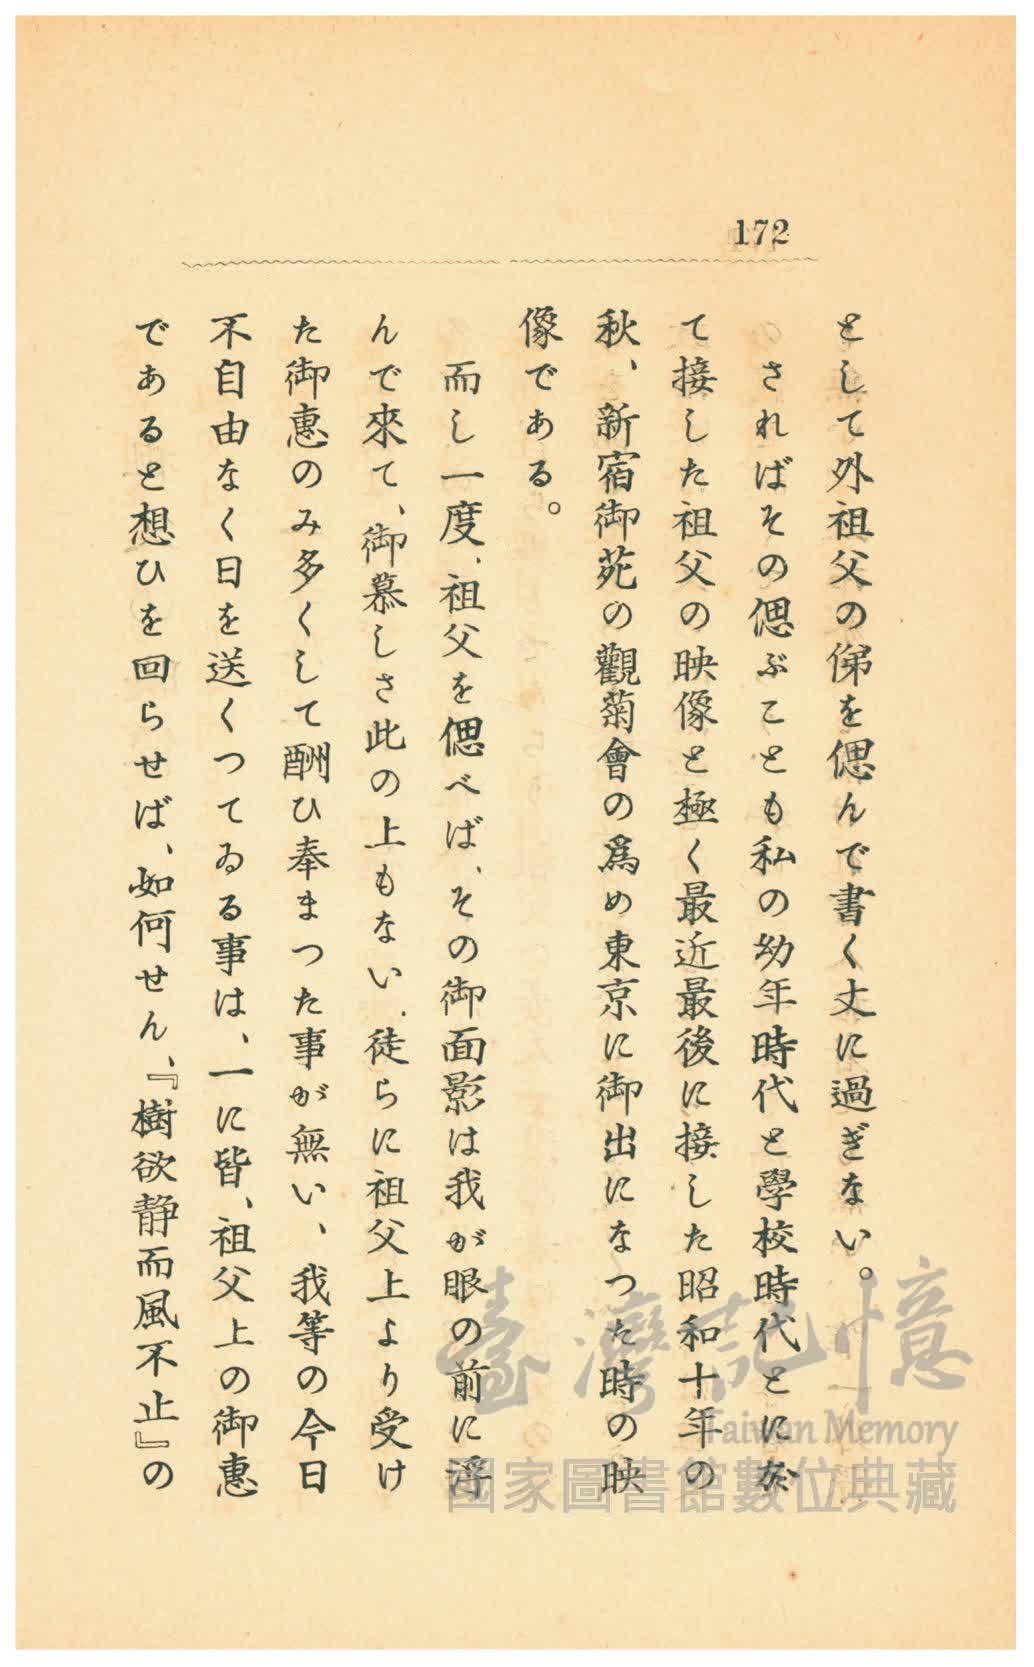 172
として外祖父の俤を偲んで書く丈に過ぎない。
さればその偲ぶことも私の幼年時代と學校時代とに於
て接した祖父の映像と極く最近最後に接した昭和十年の
秋、新宿御苑の觀菊會の爲め東京に御出になつた時の映
像である。
而し一度、祖父を偲べば、その御面影は我が眼の前に浮
んで來て、御慕しさ此の上もない、徒らに祖父上より受け
た御惠のみ多くして酬ひ奉まつた事が無い、我等の今日
不自由なく日を送くつてゐる事は、一に皆、祖父上の御惠
であると想ひを回らせば、如何せん、『樹欲静而風不止』の
臺灣記憶
Taiwan Memory
國家圖書館數位典藏